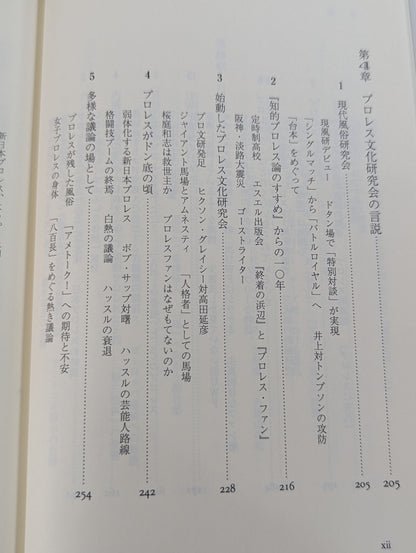 第4章 プロレス文化研究会の言説 205
1 現代風俗研究会 205
現風研デビュー ドタン場で「特別対談」が実現
「シングルマッチ」から「バトルロイヤル」へ 井上対トンプソンの攻防
「台本」をめぐって
2 『知的プロレス論のすすめ』からの一〇年 216
定時制高校 エスエル出版会 『終着の浜辺』と『プロレス・ファン』
阪神・淡路大震災 ゴーストライター
3 始動したプロレス文化研究会 228
プロ文研発足 ヒクソン・グレイシー対高田延彦
ジャイアント馬場とアムネスティ 「人格者」としての馬場
桜庭和志は救世主か プロレスファンはなぜもてないのか
4 プロレスがドン底の頃 242
弱体化する新日本プロレス ボブ・サップ対曙 ハッスルの芸能人路線
格闘技ブームの終焉 白熱の議論 ハッスルの衰退
5 多様な議論の場として 254
プロレスが残した風俗 「アメトーク!」への期待と不安
女子プロレスの身体 「八百長」をめぐる熱き議論
xii